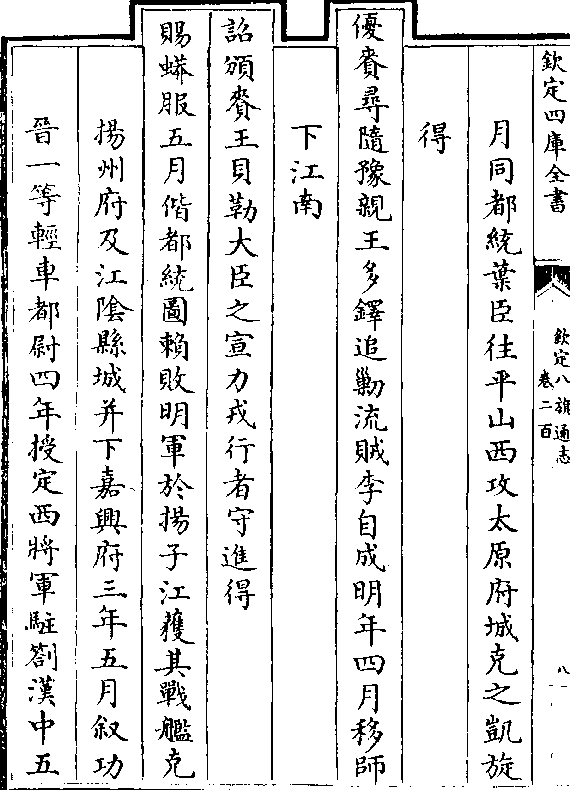 欽定四庫全書
欽定八旗通志
卷二百
八
月同都統葉臣往平山西攻太原府城克之凱旋
得
優賚尋隨豫親王多鐸追勦流賊李自成明年四月移師
下江南
詔頒賚王貝勒大臣之宣力戎行者守進得
賜蟒服五月偕都統圖賴敗明軍於揚子江獲其戰艦克
揚州府及江陰縣城并下嘉興府三年五月敘功
晉一等輕車都尉四年授定西將軍駐劄漢中五